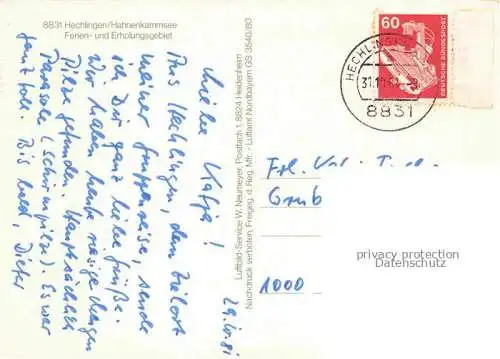 8831 Hechlingen/Hahnenkammsee
Ferien- und Erholungsgebiet
Liebe Katja!
Aus Hechlingen, dem Zielort
meiner Gruppenreise, sende
ich Dir ganz liebe Grüße.
Wir haben heute riesige Mengen
Pilze gefunden. Hauptsächlich
Parasole (Schirmpilze). Es war
ganz toll. Bis bald, Dieter
29.10.81
Luftbild-Service W. Neumeyer, Postfach 1, 8824 Heidenheim
Nachdruck verboten, Freigeg. d. Reg. Mfr. - Luftamt Nordbayern GS 3540/80
60
DEUTSCHE BUNDESPOST
HECHLINGEN
31.10.81
8831
1000
privacy protection
Datenschutz